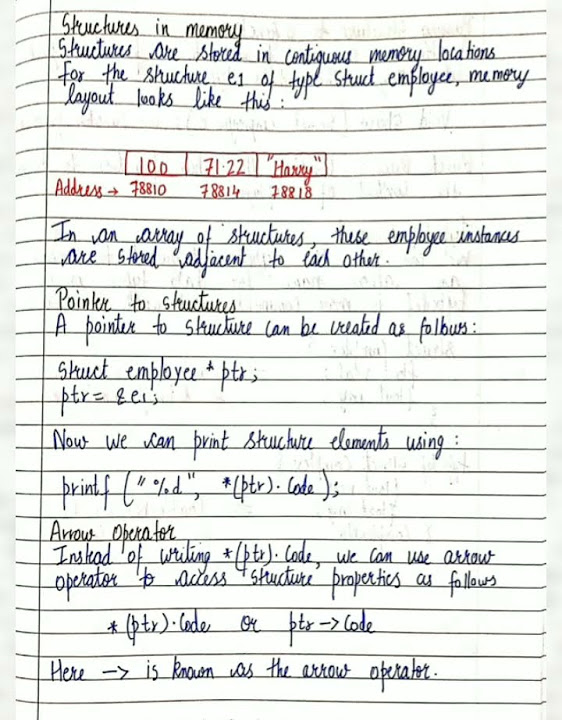 Structures in memory
Structures are stored in contiguous memory locations
For the structure e1 of type struct employee, memory
layout looks like this :
100 71.22 "Harry"
Address → 78810 78814 78818
In an array of structures, these employee instances
are stored adjacent to each other.
Pointer to structures
A pointer to structure can be created as follows :
Struct employee * ptr;
ptr = &e1;
Now we can print structure elements using :
printf ("%d", *(ptr).Code);
Arrow Operator
Instead of writing *(ptr).Code, we can use arrow
operator to access structure properties as follows
*(ptr).Code or ptr -> Code
Here -> is known as the arrow operator.